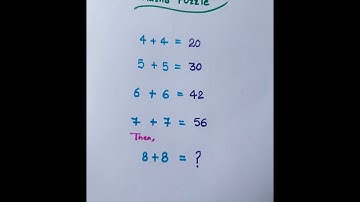 Maths Puzzle
4 + 4 = 20
5 + 5 = 30
6 + 6 = 42
7 + 7 = 56
Then,
8 + 8 = ?